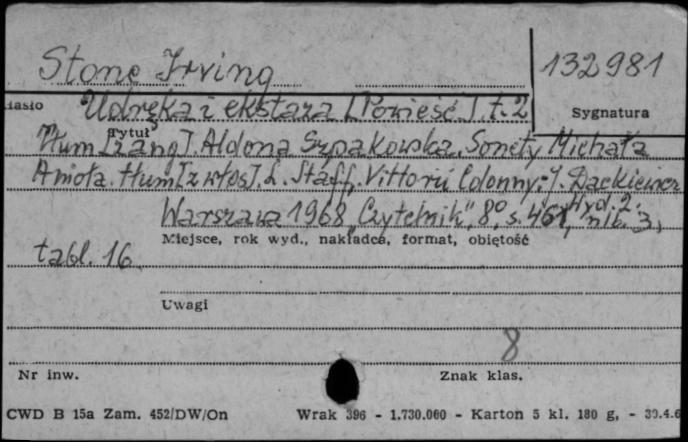 Stone Irving
132981
Hasło
Udręka i ekstaza [Powieść]. t. 2
Sygnatura
Tytuł
Tłum [z ang]. Aldona Szpakowska. Sonety Michała
Anioła tłum [z włos]. L. Staff. Vittorii Colonny:-J. Dackiewicz
Wyd. 2.
Warszawa 1968 "Czytelnik", 8°, s. 461, nlb. 3,
Miejsce, rok wyd., nakładca, format, objętość
tabl. 16
Uwagi
8
Nr inw.
Znak klas.
CWD B 15a Zam. 452/DW/On Wrak 396 - 1.730.000 - Karton 5 kl. 180 g, - 30.4.6